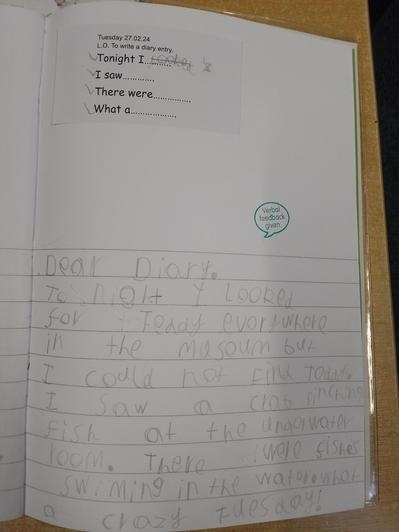 Tuesday 27.02.24
L.O. To write a diary entry.
Tonight I.......... Looked
I saw.............
There were................
What a...................
Verbal
feedback
given.
Dear Diary.
To night I Looked
for Teddy evorywhere
in the museum but
I could not find Teddy.
I saw a crab pinching
fish at the underwater
room. There were fishes
swiming in the water. what
a crazy Tuesday!